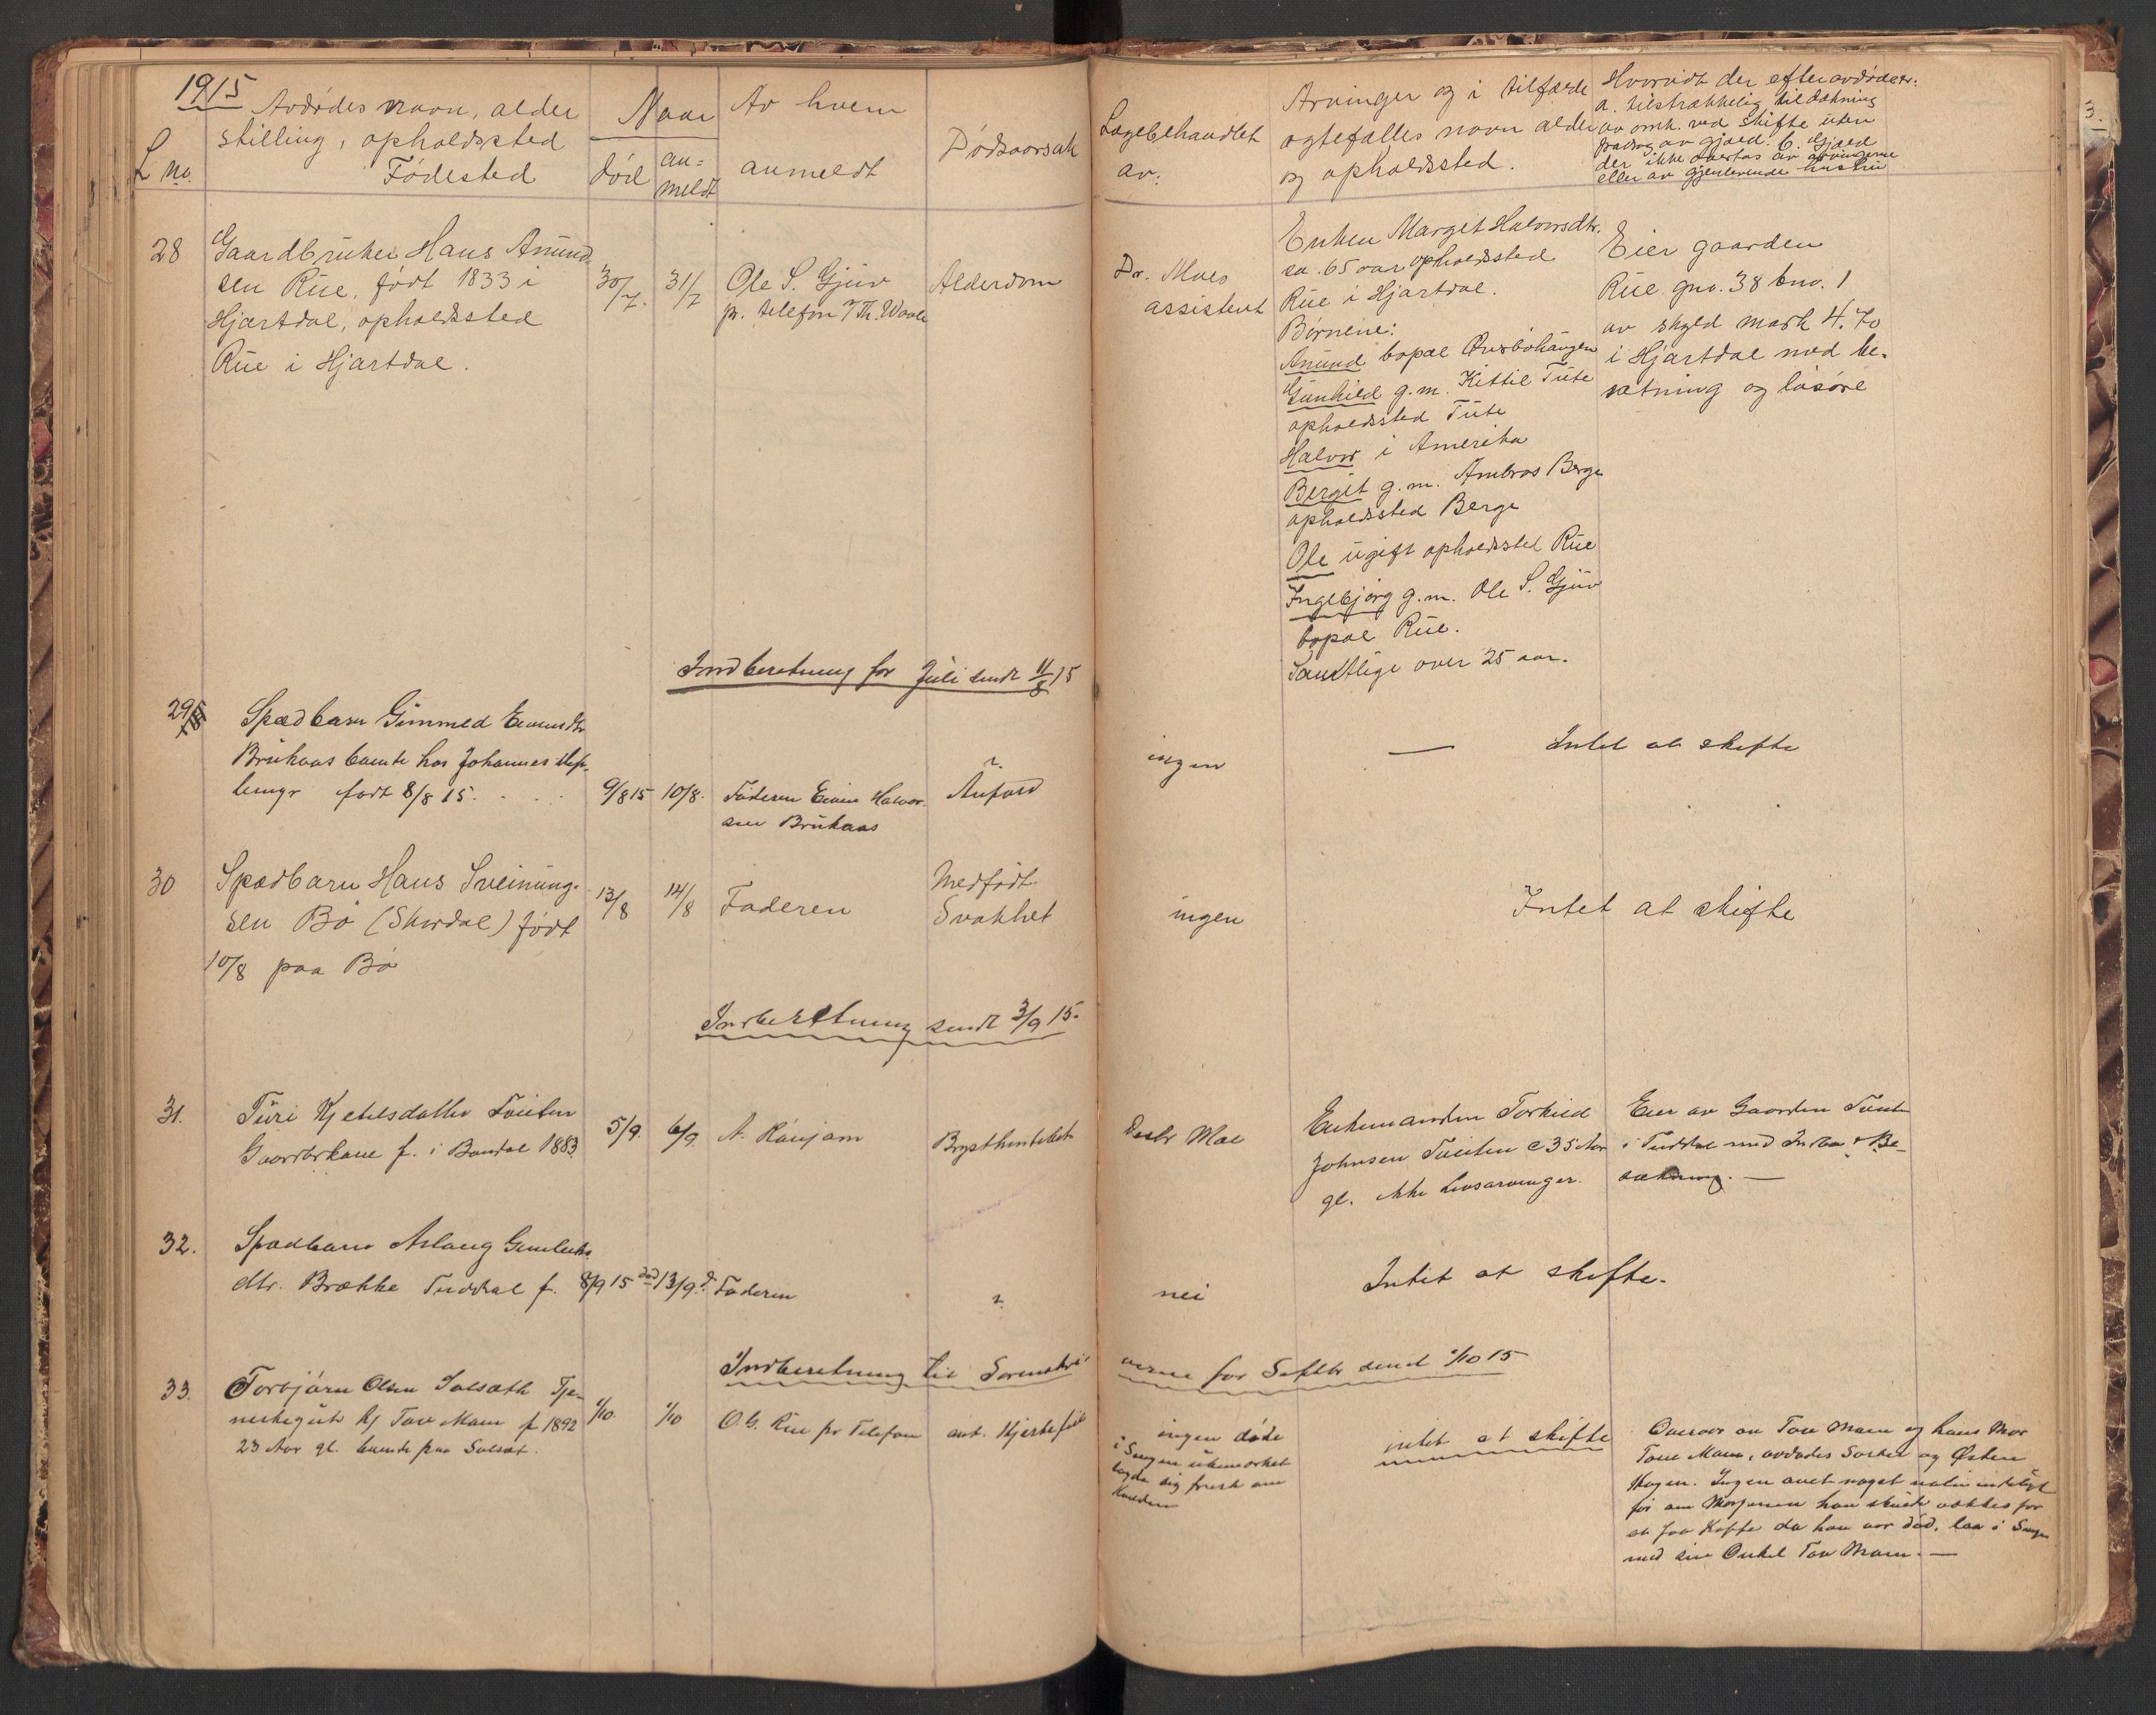 1915
Avdødes navn, alder
stilling, opholdssted
Fødested
L no.
Naar
død
an=
meldt
Av hvem
anmeldt
Dødsaarsak
Lægebehandlet
av:
Arvinger og i tilfælde
ægtefælles navn alder
og opholdssted.
Hvorvidt der efter avdøde er:
a. tilstrækkelig til dækning
av omk. ved skifte uten
fradrag av gjæld. b. Gjæld
der ikke overtas av arvingerne
eller av gjenlevende hustru
28
Gaardbruker Hans Amund
sen Rue, født 1833 i
Hjartdal, opholdssted
Rue i Hjartdal.
30/7.
31/7
Ole S. Gjuv
pr. telefon
Alderdom
Dr. Moes
assistent
Enken Marget Halvorsdtr.
ca. 65 aar opholdssted
Rue i Hjartdal.
Børnene:
Amund bopæl
Gunhild g.m. Kittil Tute
opholdssted Tute
Halvor i Amerika
Bergit g.m. Ambros Berge
opholdssted Berge
Ole ugift opholdssted Rue
Ingebjørg g.m. Ole S. Gjuv
bopæl Rue.
Samtlige over 25 aar.
Eier gaarden
Rue gno. 38 bno. 1
av skyld mark 4.70
i Hjartdal med be-
sætning og løsøre
Indberetning for Juli sendt 11/8 15
29
Spædbarn Gunmed
Brukaas hos Johannes
født 8/8 15.
9/8 15
10/8.
Faderen Eivin Halvor-
sen Brukaas
?
ingen
—
Intet at skifte
30
Spædbarn Hans Sveinung-
sen Bø (Skirdal) født
10/8 paa Bø
13/8
14/8
Faderen
Medfødt
Svakhet
ingen
Intet at skifte
Indberetning sendt 3/9 15.
31.
Turi Kjetilsdatter Tuiten
Gaardbrkone f. i Bondal 1883
5/9.
6/9
A.
Mæl
Enkemanden Torkild
Johnsen Tuiten c 35 Aar
gl. ikke Livsarvinger.
Eier av Gaarden
i Tuddal med Indbo & Be-
sætning. —
32.
Spædbarn Aslaug
dtr. Brække Tuddal f. 8/9 15 død 13/9 d.
Faderen
?
nei
Intet at skifte.
Indberetning til Sorenskri-
veren for Septbr sendt 1/10 15
33.
Torbjørn Olsen Solsæth Tje-
nestegut hj Tov Mæm f 1892
23 Aar gl. paa Solsæt.
1/10.
1/10
O.G. Rue pr Telefon
ant. Hjertefeil
ingen døde
i Sengen ubemærket
lagde sig frisk om
Kvelden
intet at skifte
Tov Mæm og hans Mor
Tone Mæm, avdødes Søster og Østen
Ingen anet noget
før om Morgenen han skulde vækkes for
at faa Kaffe da han var død. laa i Seng
med sin Onkel Tov Mæm. —
3.